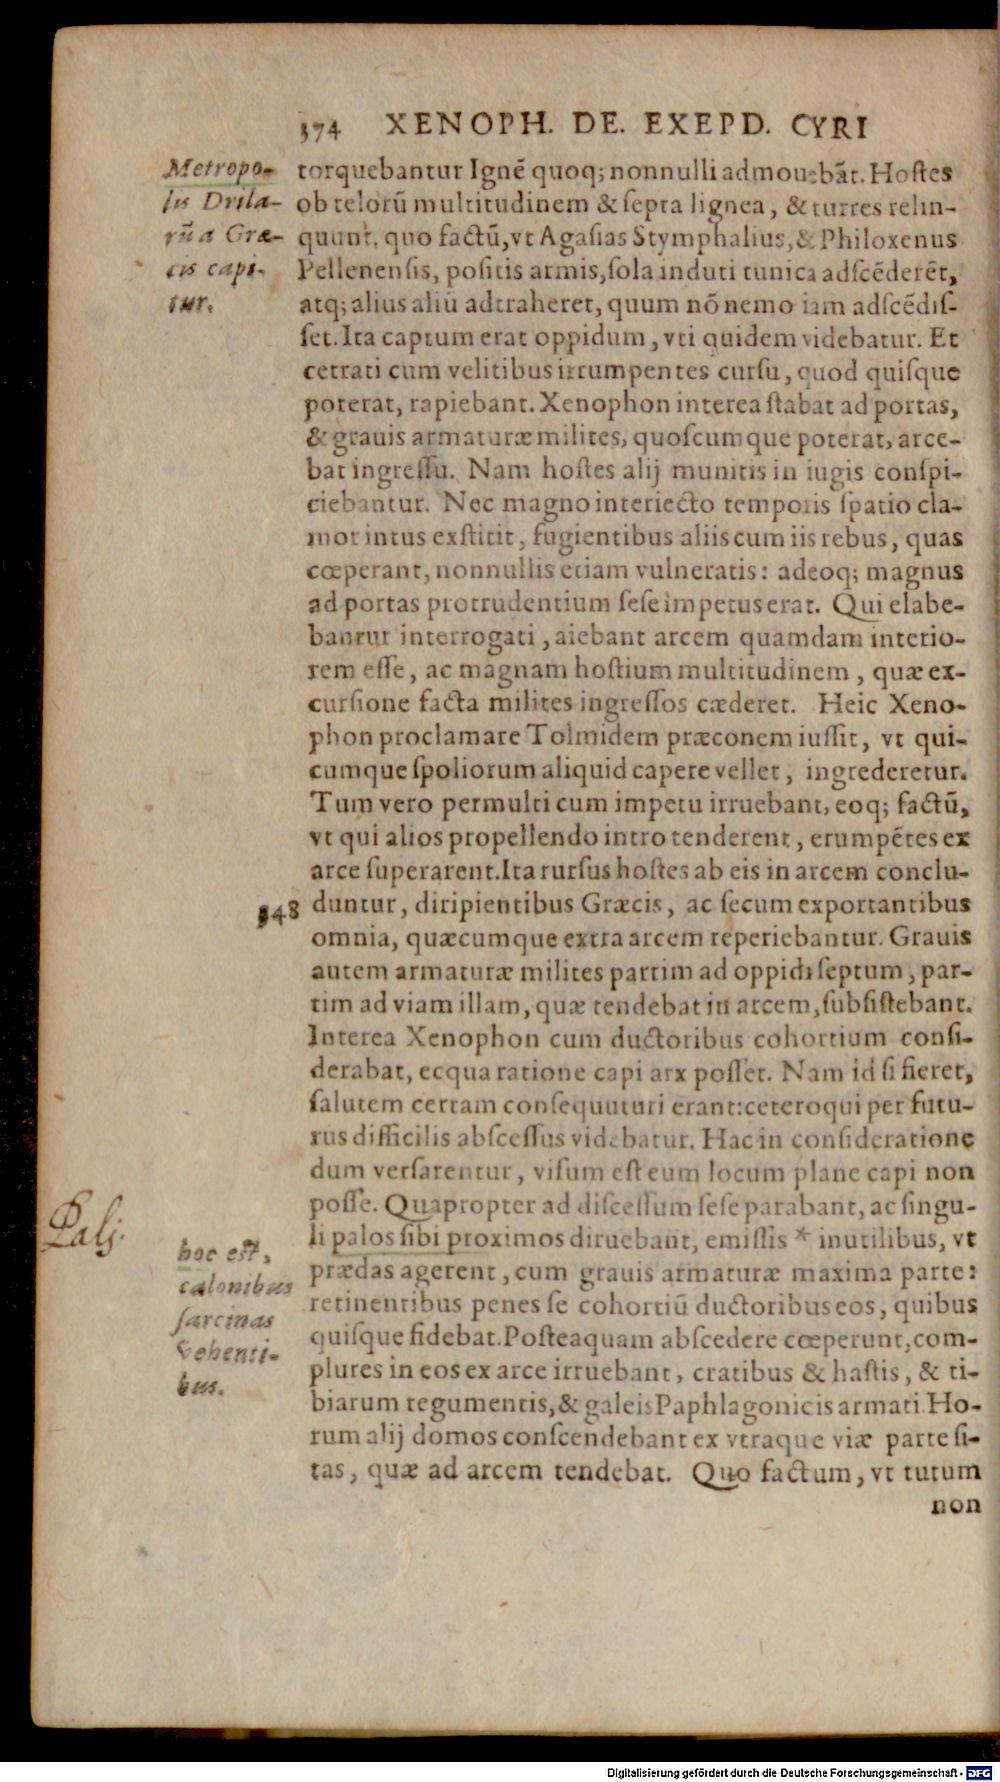 374 XENOPH. DE. EXEPD. CYRI
Metropo-
lis Drila-
rũ a Græ-
cis capi-
tur.
torquebantur Ignẽ quoq; nonnulli admouebãt. Hoſtes
ob telorũ multitudinem & ſepta lignea, & turres relin-
quunt. quo factũ, vt Agaſias Stymphalius, & Philoxenus
Pellenenſis, poſitis armis, ſola induti tunica adſcẽderẽt,
atq; alius aliũ adtraheret, quum nõ nemo iam adſcẽdiſ-
ſet. Ita captum erat oppidum, vti quidem videbatur. Et
cetrati cum velitibus irrumpentes curſu, quod quiſque
poterat, rapiebant. Xenophon interea ſtabat ad portas,
& grauis armaturæ milites, quoſcumque poterat, arce-
bat ingreſſu. Nam hoſtes alij munitis in iugis conſpi-
ciebantur. Nec magno interiecto temporis ſpatio cla-
mor intus exſtitit, fugientibus aliis cum iis rebus, quas
cœperant, nonnullis etiam vulneratis: adeoq; magnus
ad portas protrudentium ſeſe impetus erat. Qui elabe-
bantur interrogati, aiebant arcem quamdam interio-
rem eſſe, ac magnam hoſtium multitudinem, quæ ex-
curſione facta milites ingreſſos cæderet. Heic Xeno-
phon proclamare Tolmidem præconem iuſſit, vt qui-
cumque ſpoliorum aliquid capere vellet, ingrederetur.
Tum vero permulti cum impetu irruebant, eoq; factũ,
vt qui alios propellendo intro tenderent, erumpẽtes ex
arce ſuperarent. Ita rurſus hoſtes ab eis in arcem conclu-
348 duntur, diripientibus Græcis, ac ſecum exportantibus
omnia, quæcumque extra arcem reperiebantur. Grauis
autem armaturæ milites partim ad oppidi ſeptum, par-
tim ad viam illam, quæ tendebat in arcem, ſubſiſtebant.
Interea Xenophon cum ductoribus cohortium conſi-
derabat, ecqua ratione capi arx poſſet. Nam id ſi fieret,
ſalutem certam conſequuturi erant: ceteroqui per futu-
rus difficilis abſceſſus videbatur. Hac in conſideratione
dum verſarentur, viſum eſt eum locum plane capi non
poſſe. Quapropter ad diſceſſum ſeſe parabant, ac ſingu-
li palos ſibi proximos diruebant, emiſſis * inutilibus, vt
prædas agerent, cum grauis armaturæ maxima parte:
retinentibus penes ſe cohortiũ ductoribus eos, quibus
quiſque fidebat. Poſteaquam abſcedere cœperunt, com-
plures in eos ex arce irruebant, cratibus & haſtis, & ti-
biarum tegumentis, & galeis Paphlagonicis armati. Ho-
rum alij domos conſcendebant ex vtraque viæ parte ſi-
tas, quæ ad arcem tendebat. Quo factum, vt tutum
non
Palj.
hoc eſt,
calonibus
ſarcinas
vehenti-
bus.
Digitalisierung gefördert durch die Deutsche Forschungsgemeinschaft - DFG